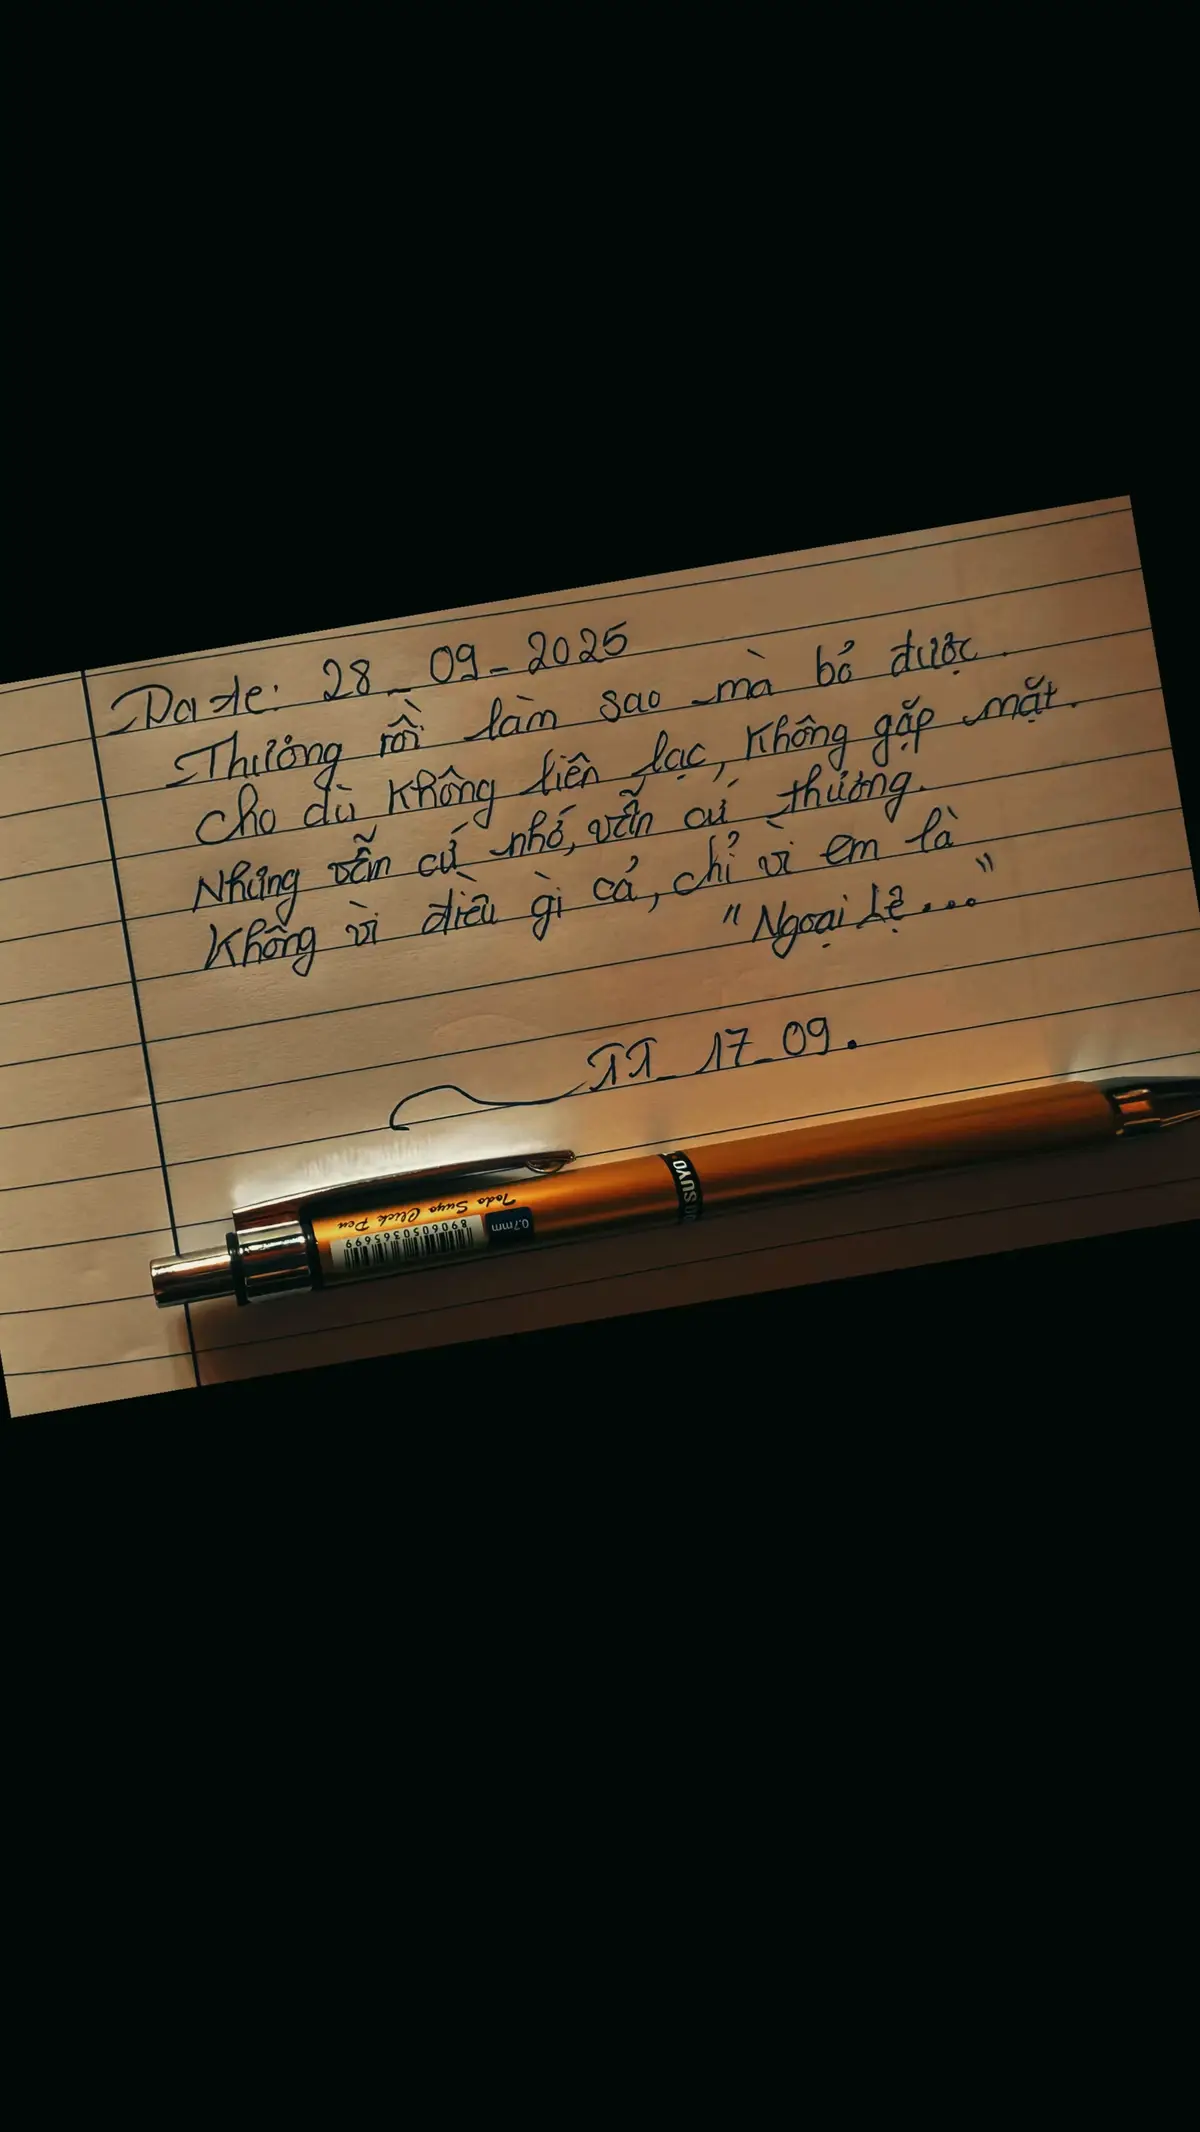 Date: 28_09_2025
Thương rồi làm sao mà bỏ được.
Cho dù không liên lạc, không gặp mặt.
Nhưng vẫn cứ nhớ, vẫn cứ thương.
Không vì điều gì cả, chỉ vì em là
"Ngoại Lệ..."
TT_17_09.
SUYO
0.7mm
Todo Suyo Click Pen
8906050365699